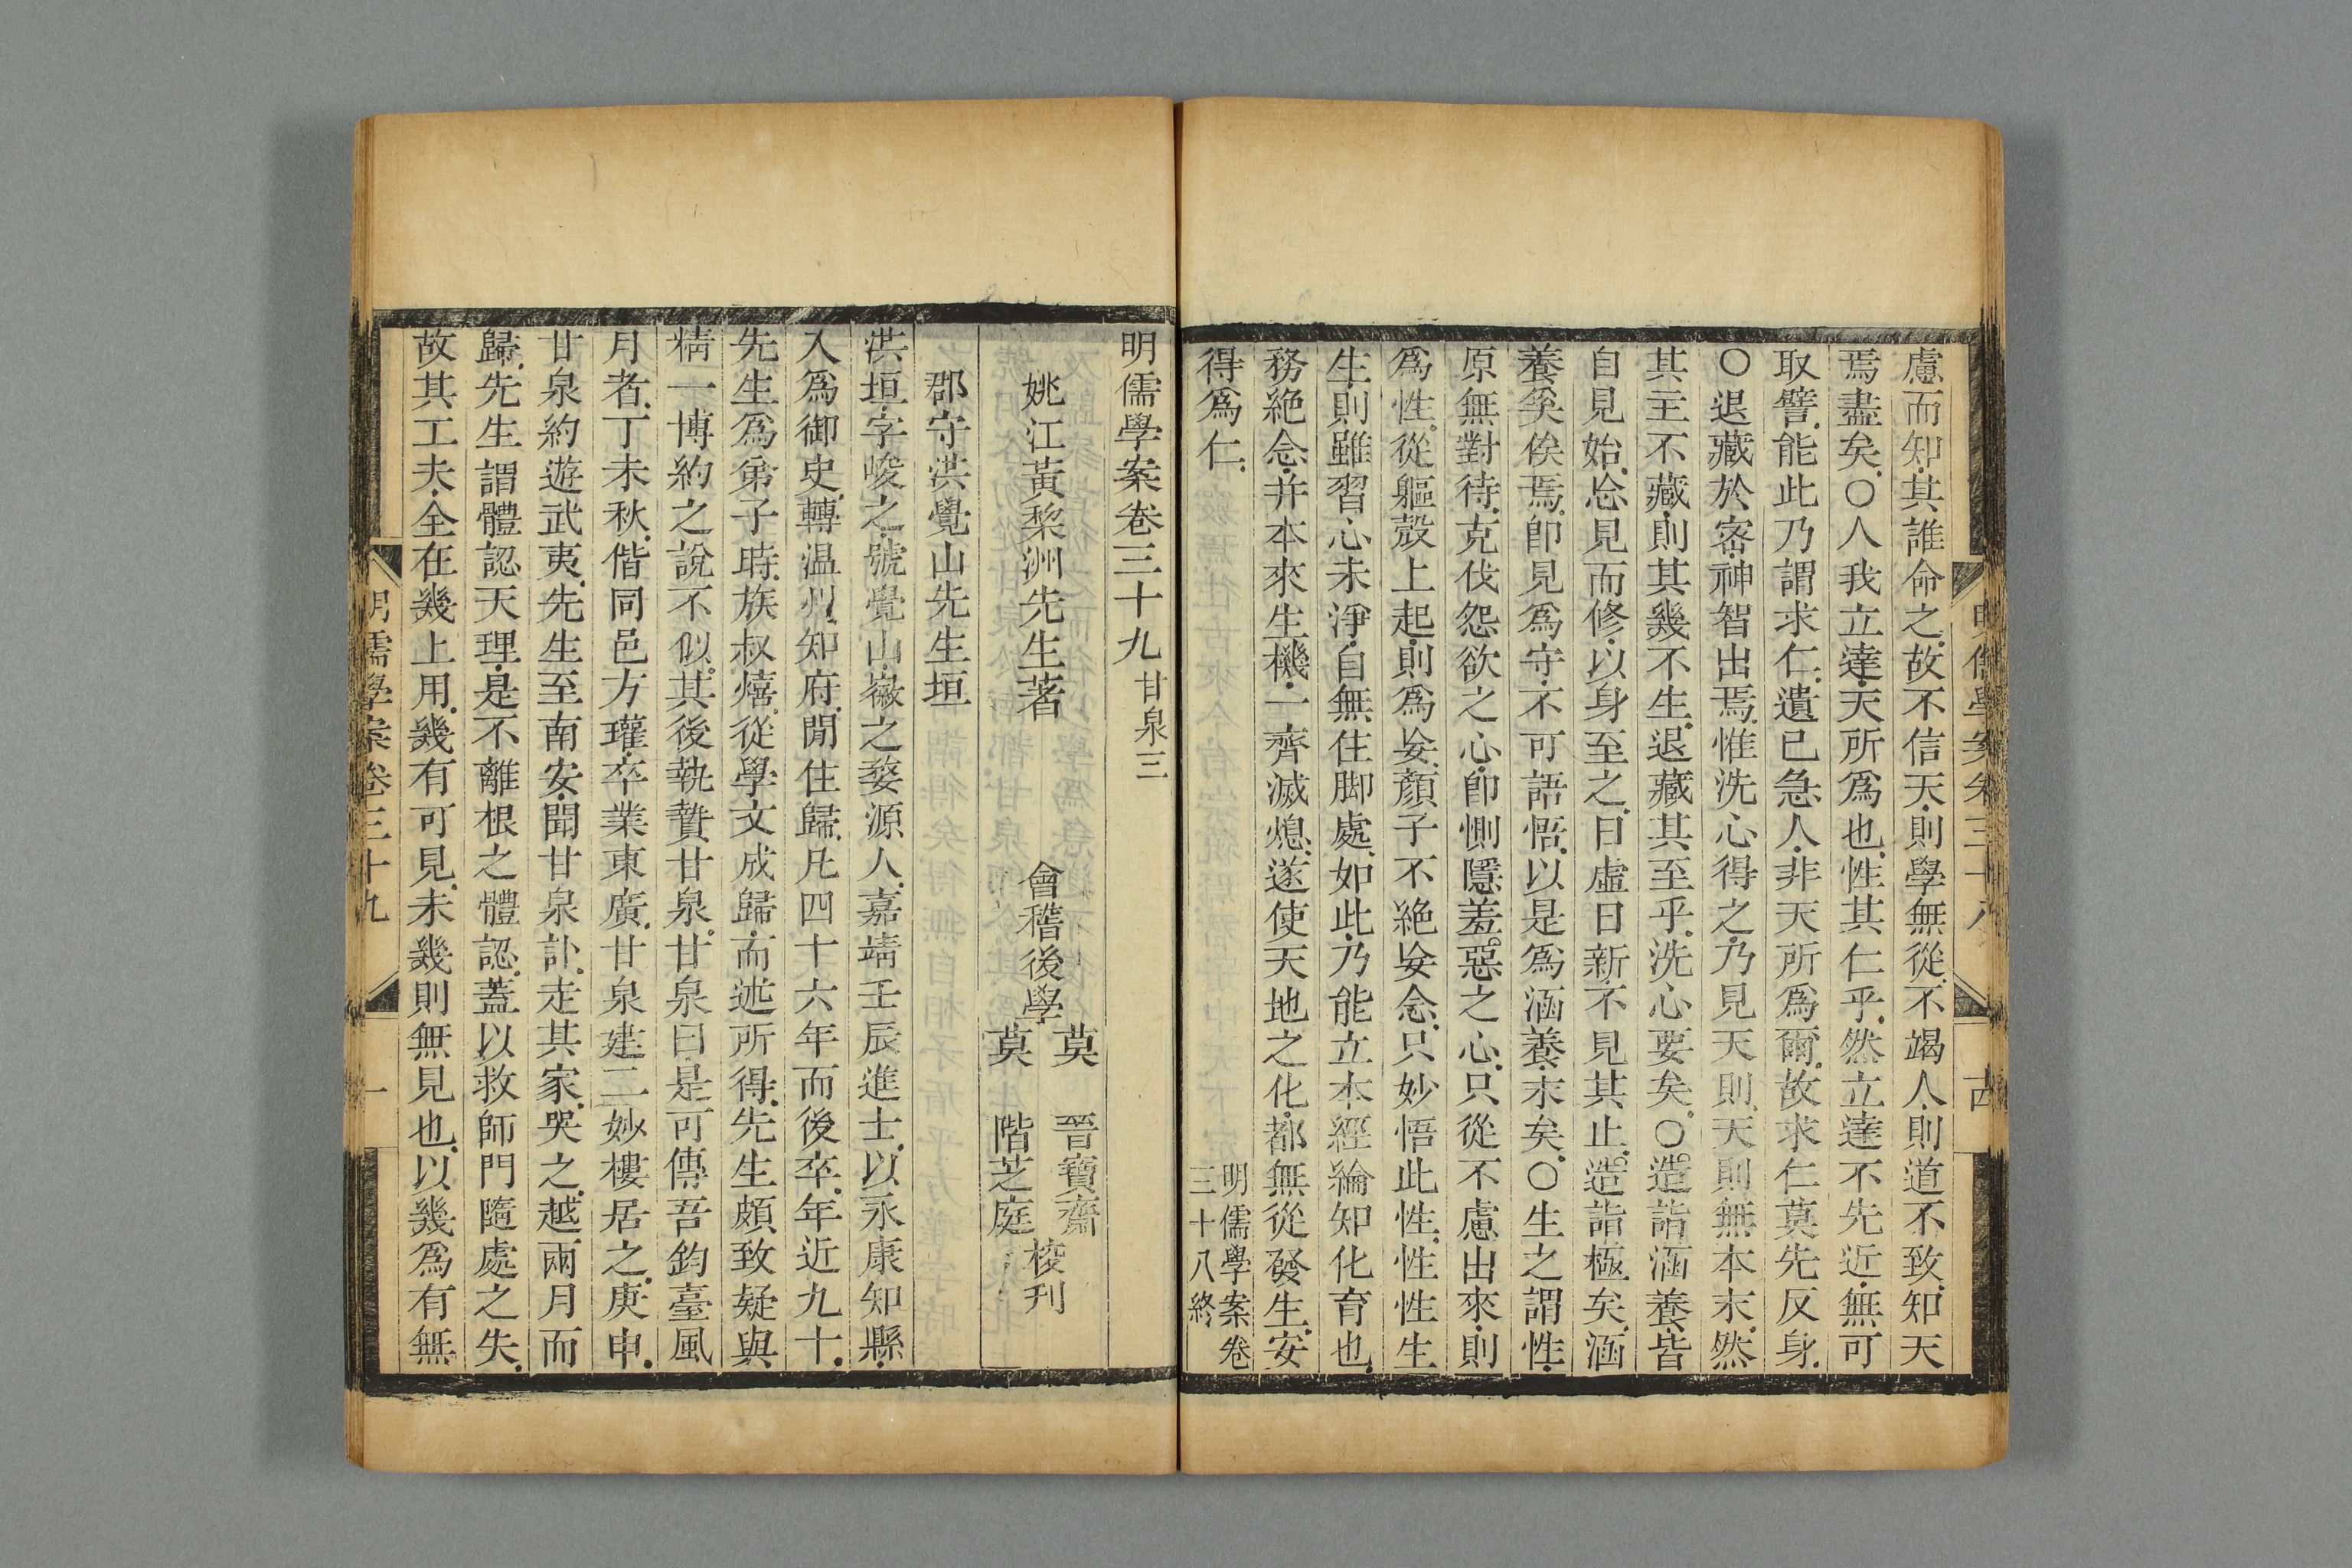 慮而知.其誰命之.故不信天.則學無從.不竭人.則道不致.知天
焉盡矣.○人我立達.天所爲也.性其仁乎.然立達不先近.無可
取譬.能此乃謂求仁.遺已急人.非天所爲爾.故求仁莫先反身.
○退藏於密.神智出焉.惟洗心得之.乃見天則.天則無本末.然
其主不藏.則其幾不生.退藏其至乎.洗心要矣.○造詣涵養.皆
自見始.忩見而修.以身至之.日虛日新.不見其止.造詣極矣.涵
養矣俟焉.卽見爲守.不可語悟.以是爲涵養.末矣.○生之謂性.
原無對待.克伐怨欲之心.卽惻隱羞惡之心.只從不慮出來.則
爲性.從軀殼上起.則爲妄.顏子不絶妄念.只妙悟此性.性性生
生.則雖習心未淨.自無住脚處.如此.乃能立本經綸知化育也.
務絶念.并本來生機.一齊滅熄.遂使天地之化.都無從發生.安
得爲仁.
明儒學案卷
三十八終
明儒學案卷三十九 甘泉三
姚江黃棃洲先生著 會稽後學 莫 晉寶齋 莫 階芝庭 梭刊
郡守洪覺山先生垣
洪垣.字峻之.號覺山.徽之婺源人.嘉靖壬辰進士.以永康知縣.
入爲御史.轉温州知府.閒住歸.凡四十六年而後卒.年近九十.
先生爲弟子時.族叔熺.從學文成歸.而述所得.先生頗致疑與
精一博約之說不似.其後執贄甘泉.甘泉曰.是可傳吾釣臺風
月者.丁未秋.偕同邑方瓘.卒業東廣.甘泉建二妙樓居之.庚申.
甘泉約遊武夷.先生至南安.聞甘泉訃.走其家.哭之.越兩月而
歸.先生謂體認天理.是不離根之體認.蓋以救師門隨處之失.
故其工夫.全在幾上用.幾有可見.未幾則無見也.以幾爲有無
明儒學案卷三十九 一